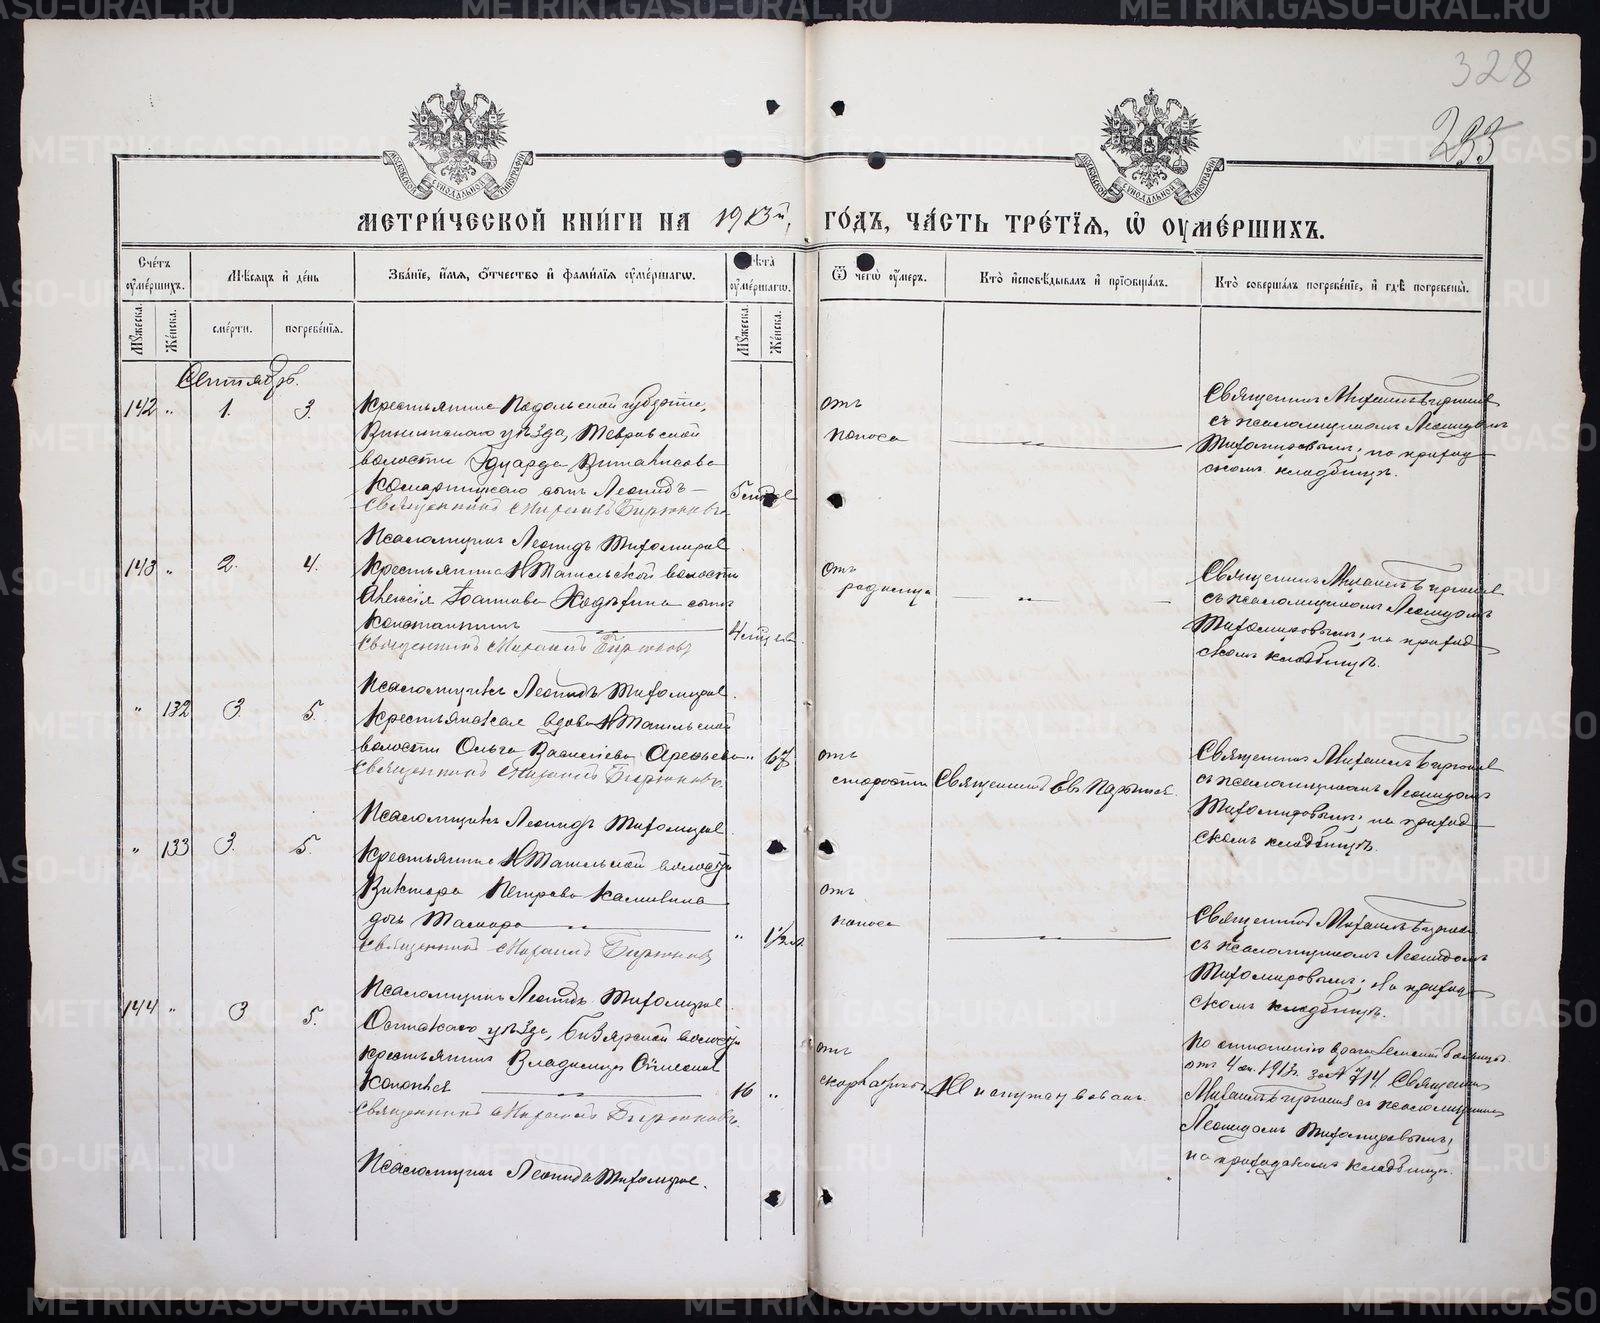 328
233
МЕТРИ́ЧЕСКОЙ КНИ́ГИ НА 1913й,
ГО́ДЪ, ЧА́СТЬ ТРЕ́ТІѦ, Ѡ҆ ОУМЕ́РШИХЪ.
Сче́тъ оуме́ршихъ.
Мѣ́сяцъ и҆ де́нь
Зва́ніе, и҆́мя, ѻ҆́тчество и҆ фами́лїя оуме́ршагѡ.
Лѣта̀ оуме́ршагѡ.
Ѿ чегѡ̀ оу́меръ.
Кто̀ и҆сповѣ́дывалъ и҆ прїѡбща́лъ.
Кто̀ соверша́лъ погребе́нїе, и҆ гдѣ̀ погребены̀.
Мꙋ́жеска.
Же́нска.
сме́рти.
погребе́нїя.
Мꙋ́жеска.
Же́нска.
Сентябрь.
142 " 1. 3.
Крестьянина Подольской губерніи,
Винницкаго уѣзда,
волости Эдуарда
сынъ Леонидъ —
Священникъ Михаилъ Бирюковъ
Псаломщикъ Леонидъ Тихомировъ
отъ
поноса
Священникъ Михаилъ Бирюковъ
съ псаломщикомъ Леонидомъ
Тихомировымъ; на приход
скомъ кладбищѣ.
143 " 2. 4.
Крестьянина Н Тагильской волости
Алексія Іоаннова сынъ
Константинъ
Священникъ Михаилъ Бирюковъ
Псаломщикъ Леонидъ Тихомировъ.
отъ
родимца
Священникъ Михаилъ Бирюковъ
съ псаломщикомъ Леонидомъ
Тихомировымъ; на приход
скомъ кладбищѣ.
" 132 3. 5.
Крестьянская вдова Н Тагильской
волости Ольга Васильева Арефьева " 67
Священникъ Михаилъ Бирюковъ.
Псаломщикъ Леонидъ Тихомировъ.
отъ
старости
Священникъ Евг.
Священникъ Михаилъ Бирюковъ
съ псаломщикомъ Леонидомъ
Тихомировымъ; на приход
скомъ кладбищѣ.
" 133 3. 5.
Крестьянина Н Тагильской волости
Виктора Петрова Калинина
дочь Тамара " 1½
Священникъ Михаилъ Бирюковъ
Псаломщикъ Леонидъ Тихомировъ.
отъ
поноса
Священникъ Михаилъ Бирюковъ
съ псаломщикомъ Леонидомъ
Тихомировымъ; на приход
скомъ кладбищѣ.
144 " 3 5.
Осинскаго уѣзда, Бизярской волости
крестьянинъ Владимиръ
16 "
Священникъ Михаилъ Бирюковъ.
Псаломщикъ Леонидъ Тихомировъ.
отъ
скарлатины
Не напутствованъ.
По отношенію врача Земской больницы
отъ 4 сен. 1913г. за № 714 Священникъ
Михаилъ Бирюковъ съ псаломщикомъ
Леонидомъ Тихомировымъ;
на приходскомъ кладбищѣ.
METRIKI.GASO-URAL.RU